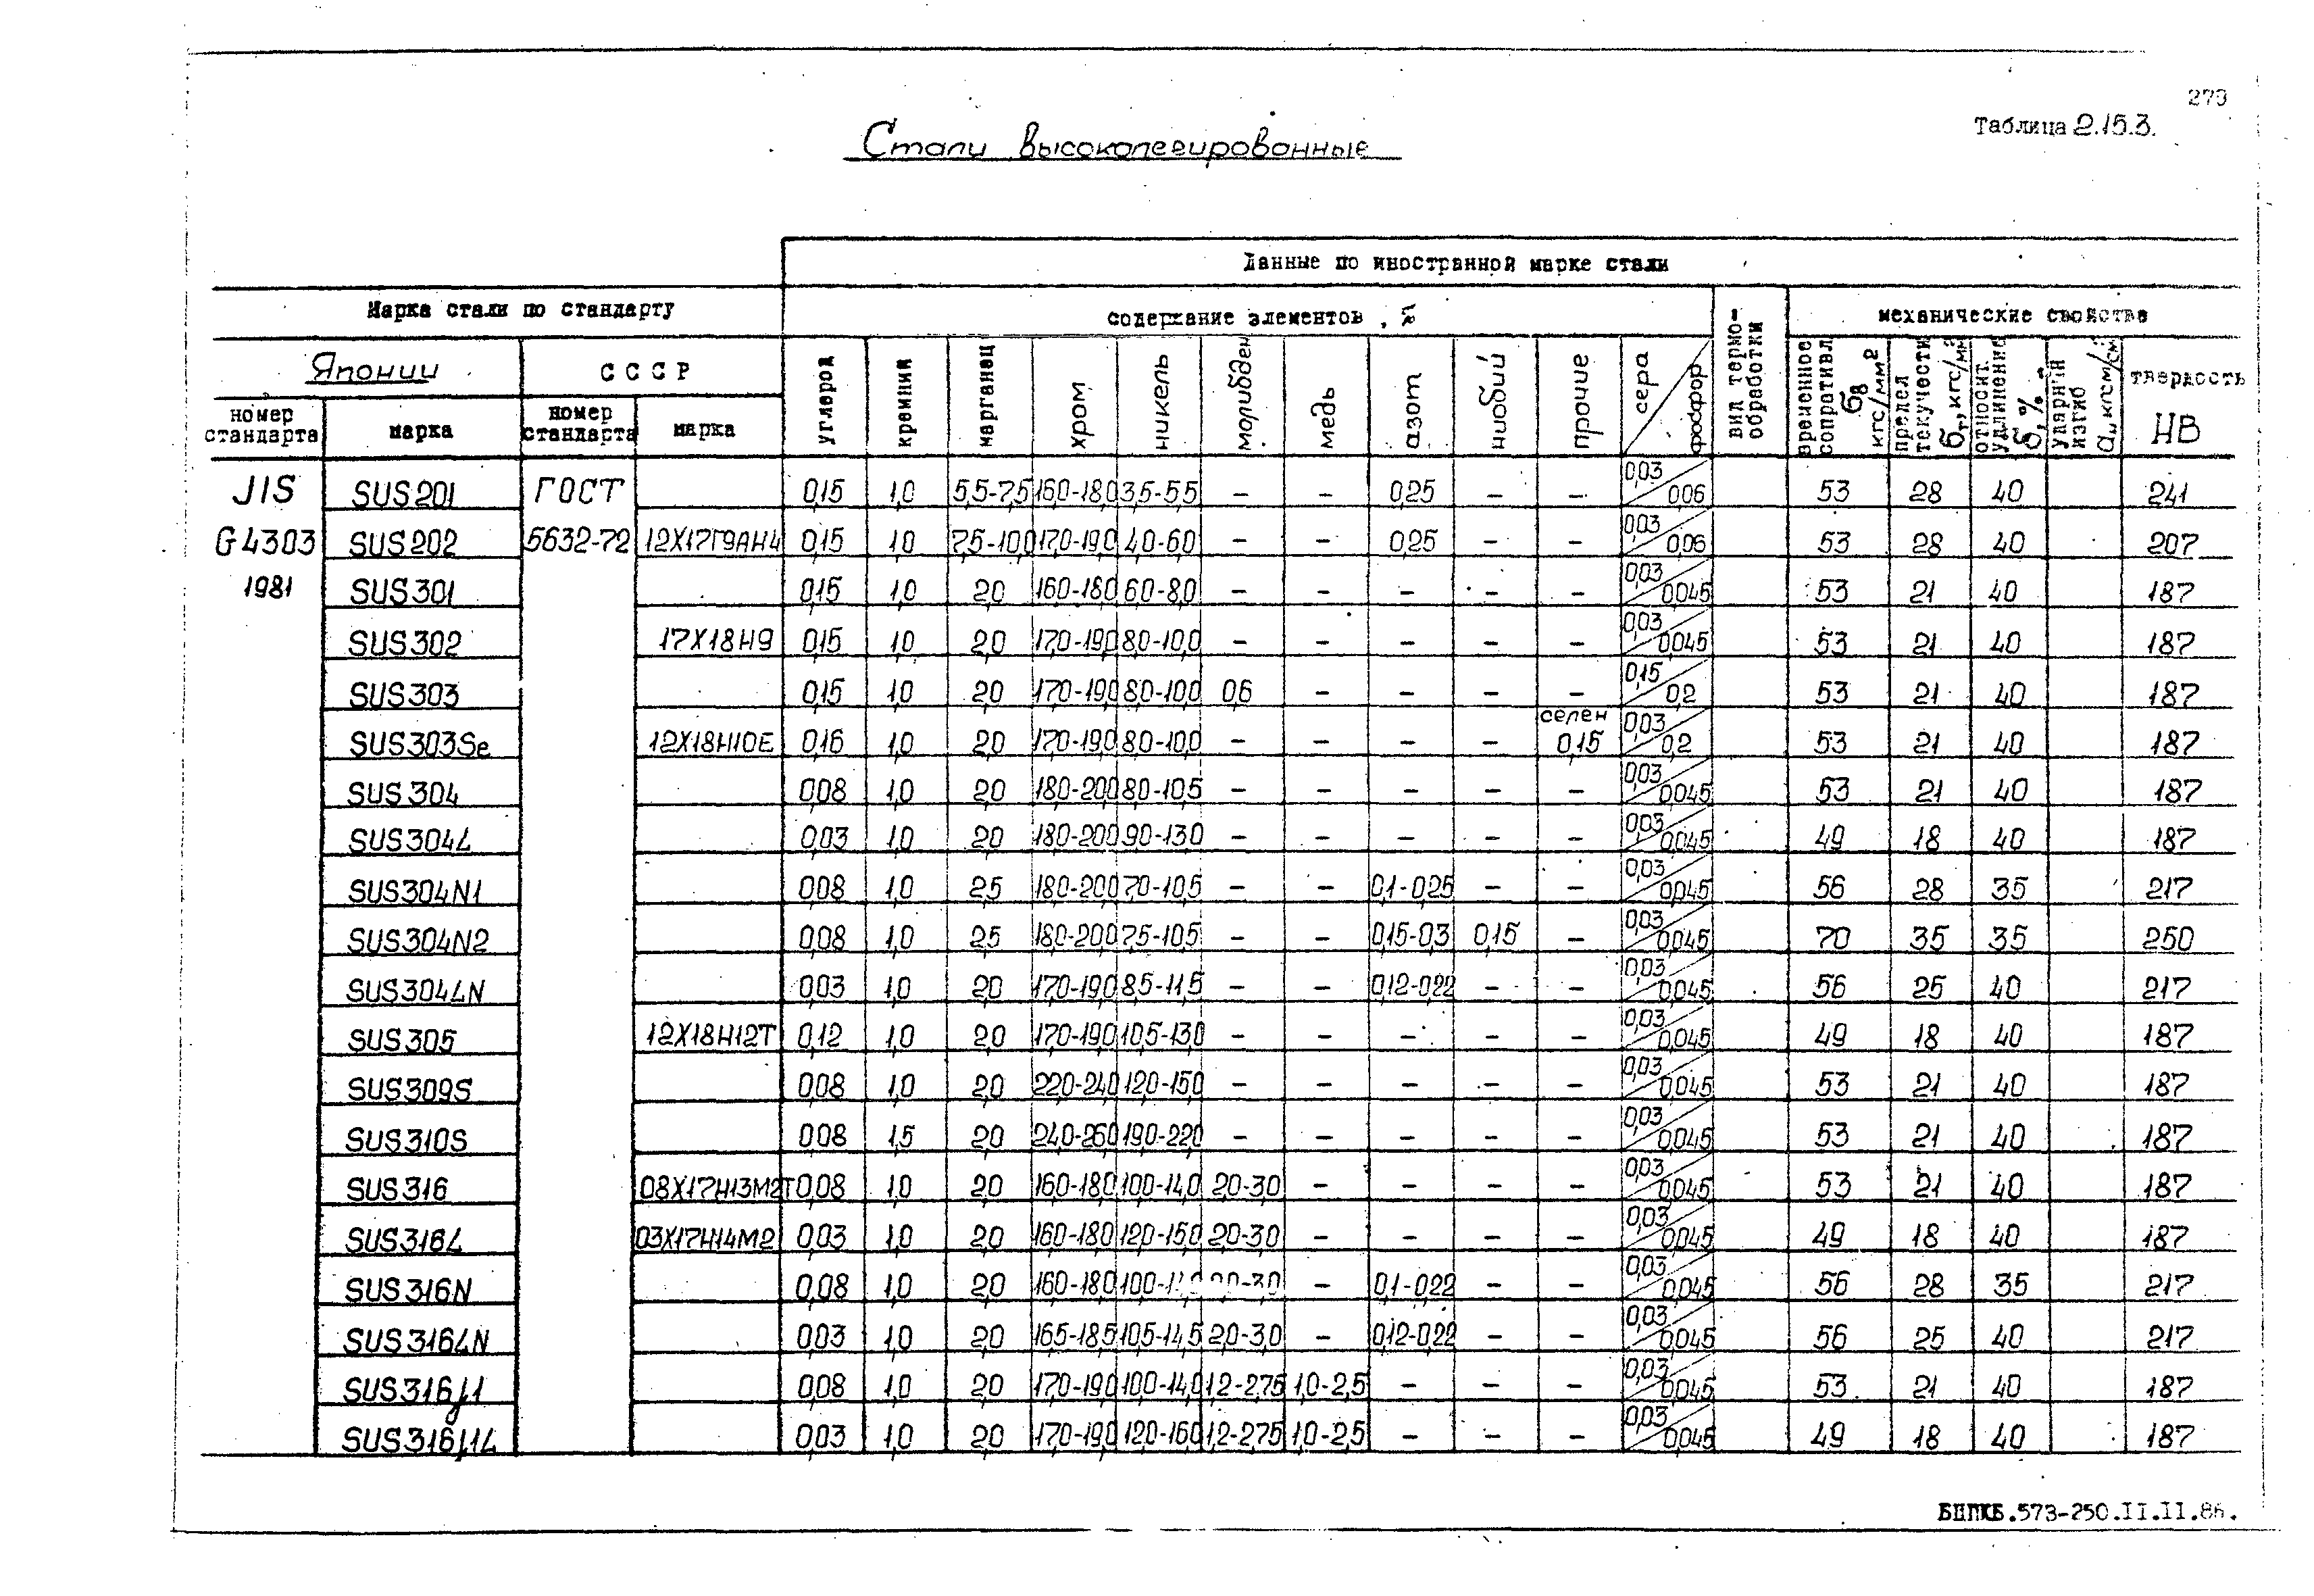 279
Таблица 2.15.3.
Стали высоколегированные
Данные по иностранной марке стали
Марка стали по стандарту
содержание элементов, %
вид термо-обработки
механические свойства
Японии
СССР
номер стандарта
марка
номер стандарта
марка
углерод
кремний
марганец
хром
никель
молибден
медь
азот
ниобий
прочие
сера / фосфор
временное сопротивл. σв кгс/мм²
предел текучести σт, кгс/мм²
относит. удлинение δ, %
ударный изгиб
твердость НВ
JIS SUS201 ГОСТ 0,15 1,0 5,5-7,5 16,0-18,0 3,5-5,5 – – 0,25 – – 0,03/0,06 53 28 40 241
G4303 SUS202 5632-72 12Х17Г9АН4 0,15 1,0 7,5-10,0 17,0-19,0 4,0-6,0 – – 0,25 – – 0,03/0,06 53 28 40 207
1981 SUS301 0,15 1,0 2,0 16,0-18,0 6,0-8,0 – – – – – 0,03/0,045 53 21 40 187
SUS302 17Х18Н9 0,15 1,0 2,0 17,0-19,0 8,0-10,0 – – – – – 0,03/0,045 53 21 40 187
SUS303 0,15 1,0 2,0 17,0-19,0 8,0-10,0 0,6 – – – – 0,15/0,2 53 21 40 187
SUS303Se 12Х18Н10Е 0,16 1,0 2,0 17,0-19,0 8,0-10,0 – – – – селен 0,15 0,03/0,2 53 21 40 187
SUS304 0,08 1,0 2,0 18,0-20,0 8,0-10,5 – – – – – 0,03/0,045 53 21 40 187
SUS304L 0,03 1,0 2,0 18,0-20,0 9,0-13,0 – – – – – 0,03/0,045 49 18 40 187
SUS304N1 0,08 1,0 2,5 18,0-20,0 7,0-10,5 – – 0,1-0,25 – – 0,03/0,045 56 28 35 217
SUS304N2 0,08 1,0 2,5 18,0-20,0 7,5-10,5 – – 0,15-0,3 0,15 – 0,03/0,045 70 35 35 250
SUS304LN 0,03 1,0 2,0 17,0-19,0 8,5-11,5 – – 0,12-0,22 – – 0,03/0,045 56 25 40 217
SUS305 12Х18Н12Т 0,12 1,0 2,0 17,0-19,0 10,5-13,0 – – – – – 0,03/0,045 49 18 40 187
SUS309S 0,08 1,0 2,0 22,0-24,0 12,0-15,0 – – – – – 0,03/0,045 53 21 40 187
SUS310S 0,08 1,5 2,0 24,0-26,0 19,0-22,0 – – – – – 0,03/0,045 53 21 40 187
SUS316 08Х17Н13М2Т 0,08 1,0 2,0 16,0-18,0 10,0-14,0 2,0-3,0 – – – – 0,03/0,045 53 21 40 187
SUS316L 03Х17Н14М2 0,03 1,0 2,0 16,0-18,0 12,0-15,0 2,0-3,0 – – – – 0,03/0,045 49 18 40 187
SUS316N 0,08 1,0 2,0 16,0-18,0 – 0,1-0,22 – – 0,03/0,045 56 28 35 217
SUS316LN 0,03 1,0 2,0 16,5-18,5 10,5-14,5 2,0-3,0 – 0,12-0,22 – – 0,03/0,045 56 25 40 217
SUS316J1 0,08 1,0 2,0 17,0-19,0 10,0-14,0 1,2-2,75 1,0-2,5 – – – 0,03/0,045 53 21 40 187
SUS316J1L 0,03 1,0 2,0 17,0-19,0 12,0-16,0 1,2-2,75 1,0-2,5 – – – 0,03/0,045 49 18 40 187